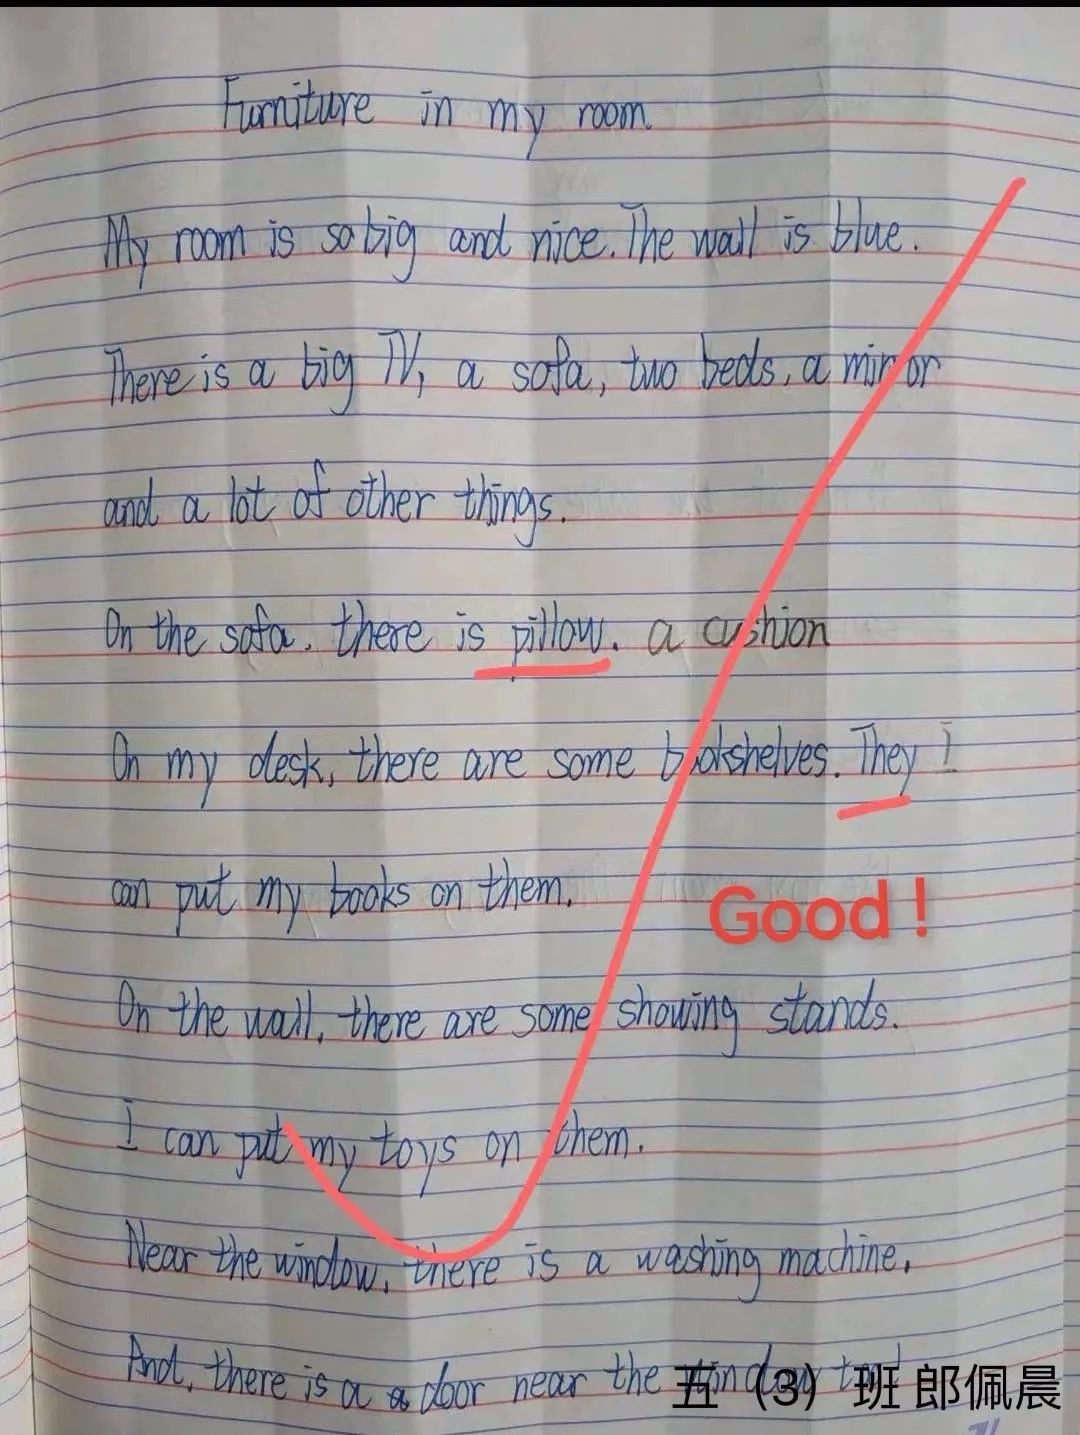 Furniture in my room.
My room is so big and nice. The wall is blue.
There is a big TV, a sofa, two beds, a mirror
and a lot of other things.
On the sofa, there is pillow. a cushion
On my desk, there are some bookshelves. They I
can put my books on them.
Good!
On the wall, there are some showing stands.
I can put my toys on them.
Near the window, there is a washing machine.
And, there is a a door near the window too!
五（3）班 郎佩晨